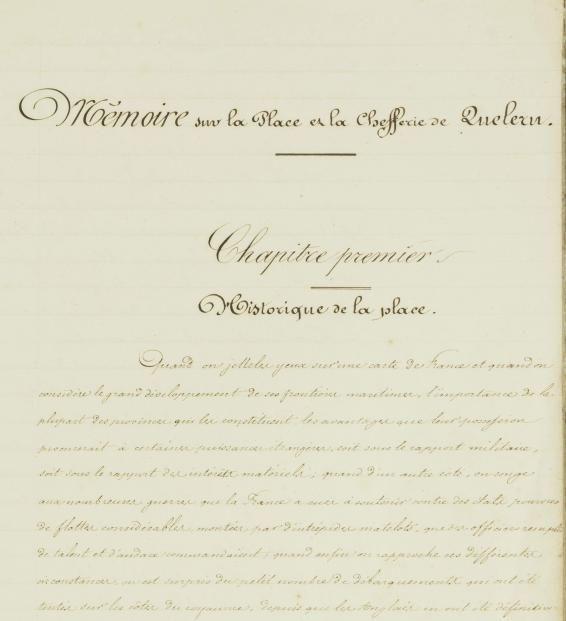 Mémoire sur la Place et la Chefferie de Quélern.
Chapitre premier.
Historique de la place.
Quand on jette les yeux sur une carte de France et quand on
considère le grand développement de ses frontières maritimes, l'importance de la
plupart des provinces qui les constituent, les avantages que leur possession
promettait à certaines puissances étrangères, soit sous le rapport militaire,
soit sous le rapport des intérêts matériels; quand d'un autre côté, on songe
aux nombreuses guerres que la France a eues à soutenir contre des états pourvus
de flottes considérables, montées par d'intrépides matelots, que des officiers
de talent et d'audace commandaient; quand enfin on rapproche ces différentes
circonstances, on est surpris du petit nombre de débarquements qui ont été
tentés sur les côtes du royaume, depuis que les Anglais en ont été